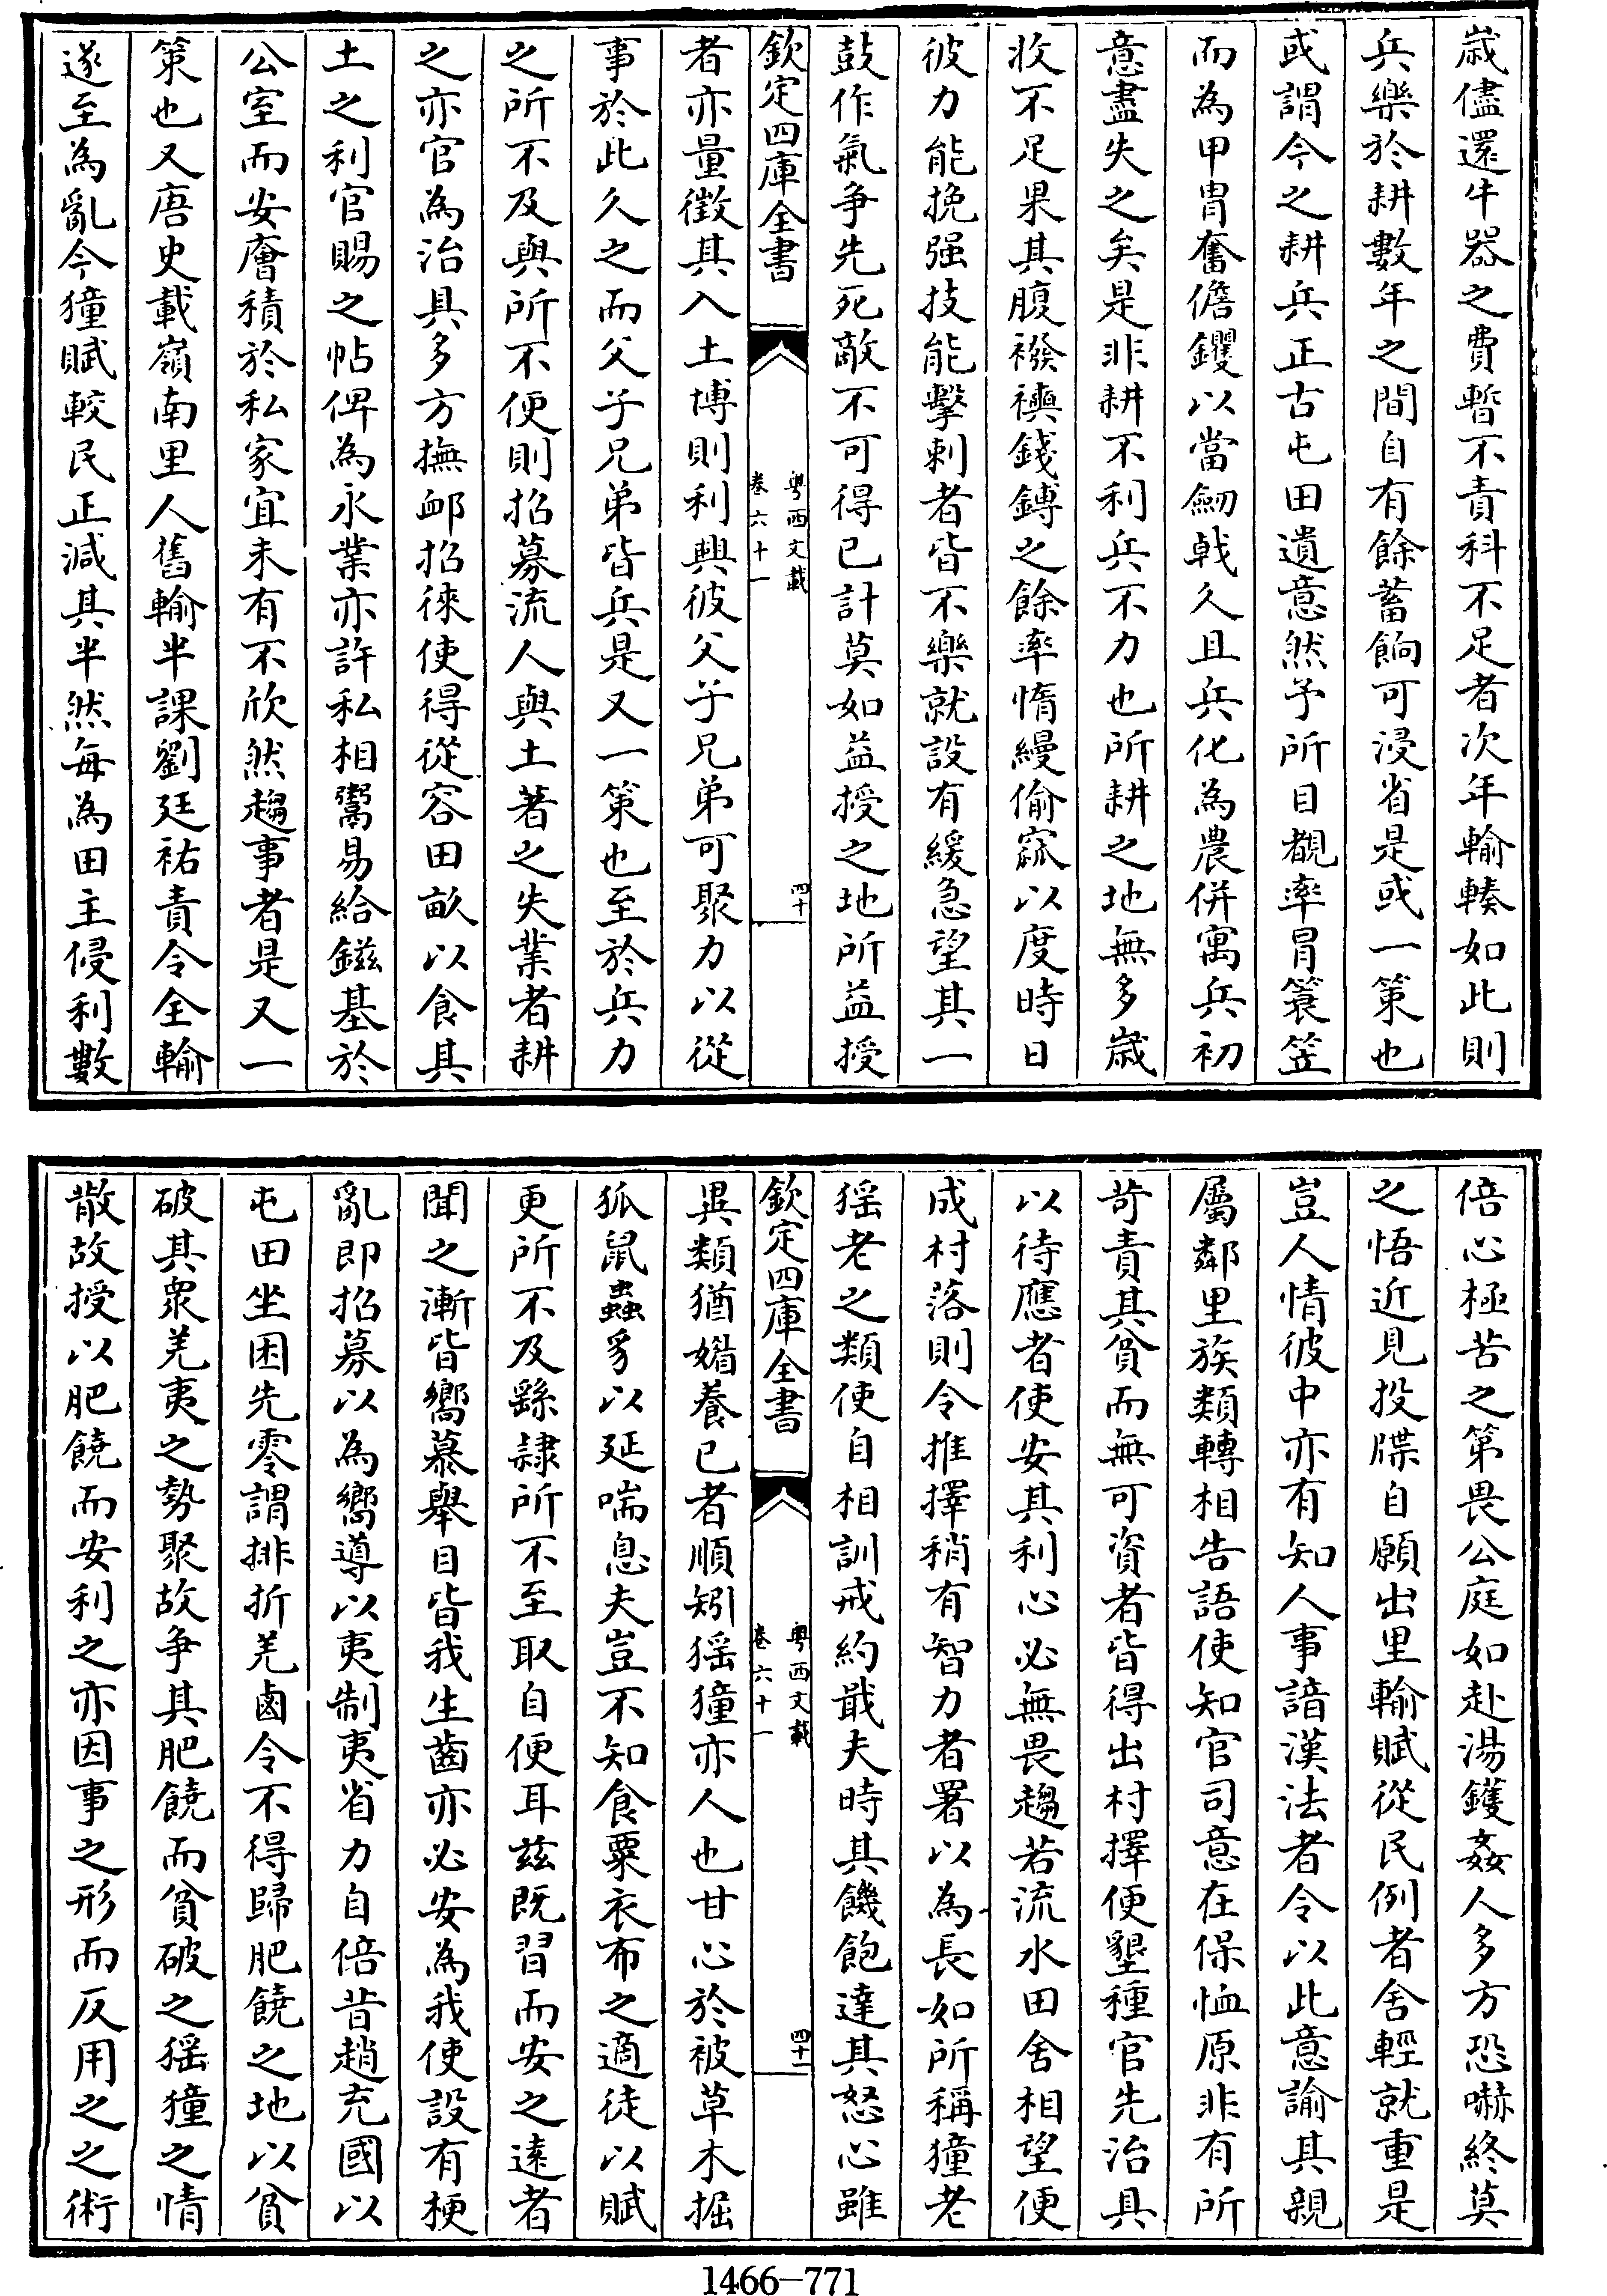 歲儘還牛器之費暫不責科不足者次年輸輳如此則
兵樂於耕數年之間自有餘蓄餉可浸省是或一策也
或謂今之耕兵正古屯田遺意然予所目覩率冐簑笠
而為甲冑奮儋钁以當劒戟久且兵化為農併寓兵初
意盡失之矣是非耕不利兵不力也所耕之地無多歲
收不足果其腹襏襫錢鎛之餘率惰縵偷窳以度時日
彼力能挽强技能擊刺者皆不樂就設有緩急望其一
鼓作氣爭先死敵不可得已計莫如益授之地所益授
欽定四庫全書
粤西文載
卷六十一
四十
者亦量徵其入土博則利興彼父子兄弟可聚力以從
事於此久之而父子兄弟皆兵是又一策也至於兵力
之所不及與所不便則招募流人與土著之失業者耕
之亦官為治具多方撫䘏招徠使得從容田畝以食其
土之利官賜之帖俾為永業亦許私相鬻易給鎡基於
公室而安廥積於私家宜未有不欣然趨事者是又一
策也又唐史載嶺南里人舊輸半課劉廷祐責令全輸
遂至為亂今獞賦較民正減其半然每為田主侵利數
倍心極苦之第畏公庭如赴湯鑊姦人多方恐嚇終莫
之悟近見投牒自願出里輸賦從民例者舍輕就重是
豈人情彼中亦有知人事諳漢法者令以此意諭其親
屬鄰里族類轉相告語使知官司意在保恤原非有所
苛責其貧而無可資者皆得出村擇便墾種官先治具
以待應者使安其利心必無畏趨若流水田舍相望便
成村落則令推擇稍有智力者署以為長如所稱獞老
猺老之類使自相訓戒約戢夫時其饑飽達其怒心雖
欽定四庫全書
粤西文載
卷六十一
四十一
異類猶媚養己者順矧猺獞亦人也甘心於被草木掘
狐鼠蟲豸以延喘息夫豈不知食粟衣布之適徒以賦
更所不及繇隷所不至取自便耳兹既習而安之遠者
聞之漸皆嚮慕舉目皆我生齒亦必安為我使設有梗
亂即招募以為嚮導以夷制夷省力自倍昔趙充國以
屯田坐困先零謂排折羌鹵令不得歸肥饒之地以貧
破其衆羌夷之勢聚故爭其肥饒而貧破之猺獞之情
散故授以肥饒而安利之亦因事之形而反用之之術
1466-771